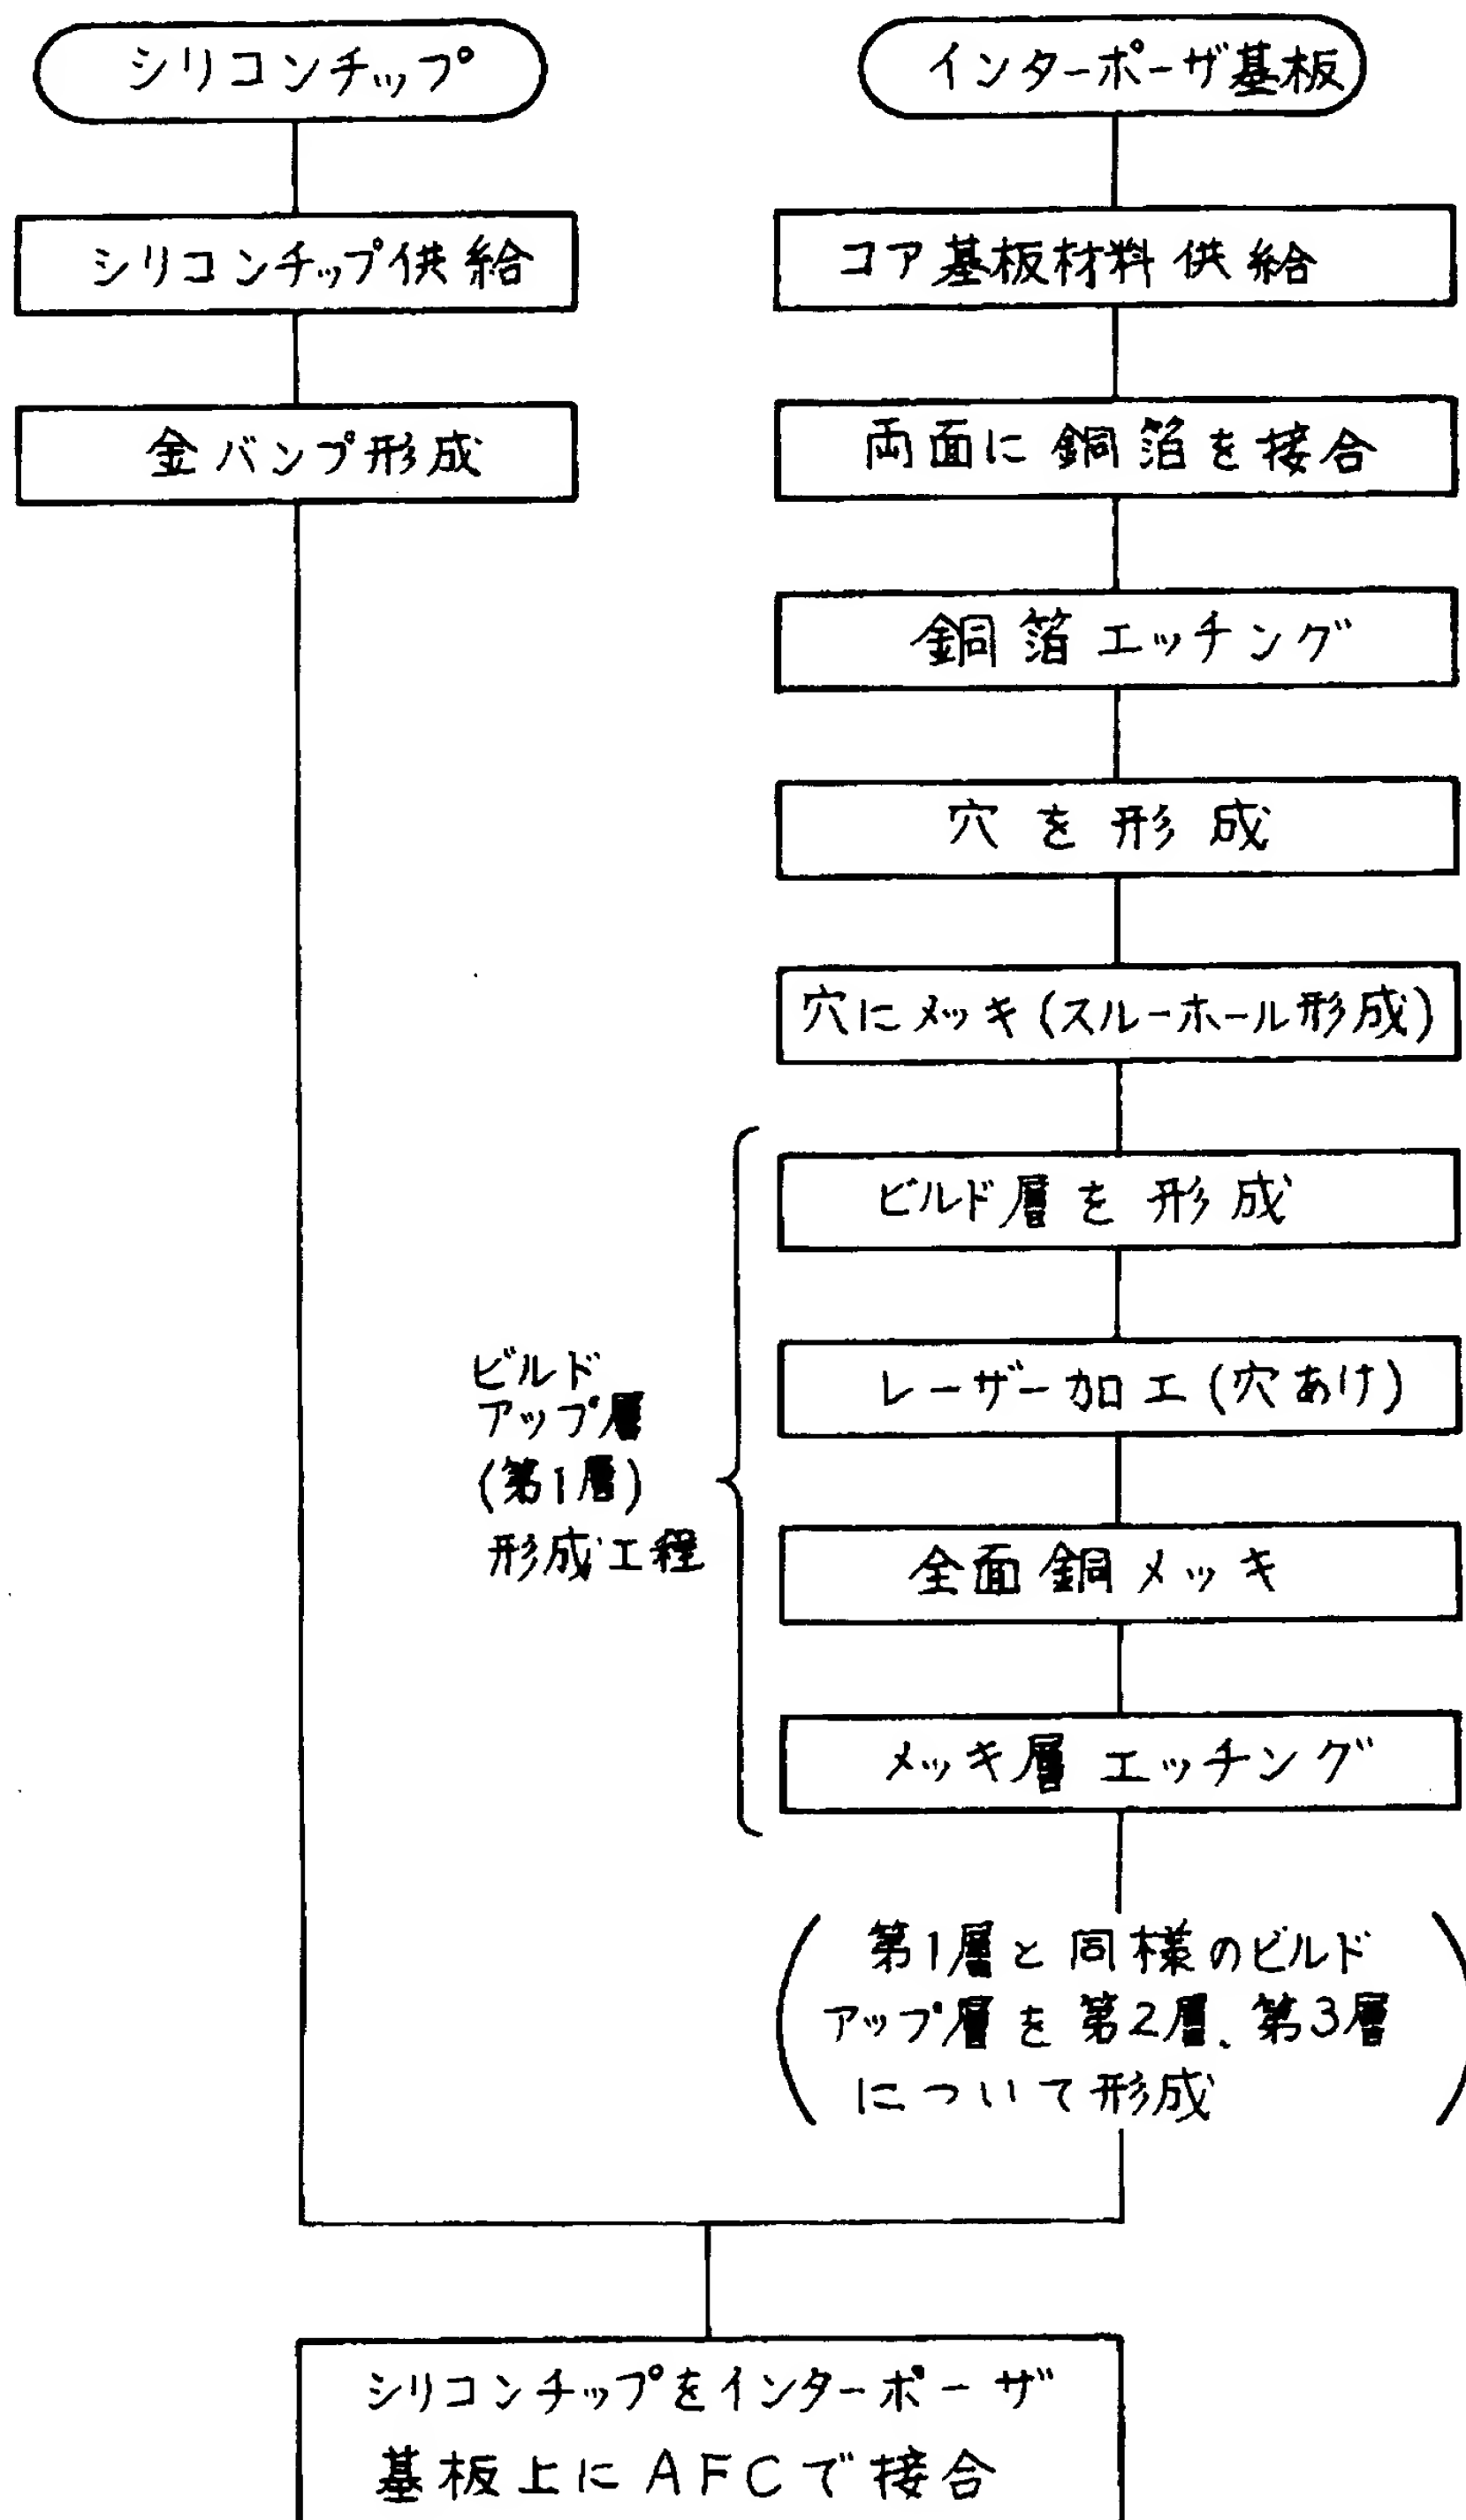 シリコンチップ
シリコンチップ供給
金バンプ形成
インターポーザ基板
コア基板材料供給
両面に銅箔を接合
銅箔エッチング
穴を形成
穴にメッキ(スルーホール形成)
ビルド
アップ層
(第1層)
形成工程
ビルド層を形成
レーザー加工(穴あけ)
全面銅メッキ
メッキ層エッチング
第1層と同様のビルド
アップ層を第2層、第3層
について形成
シリコンチップをインターポーザ
基板上にAFCで接合